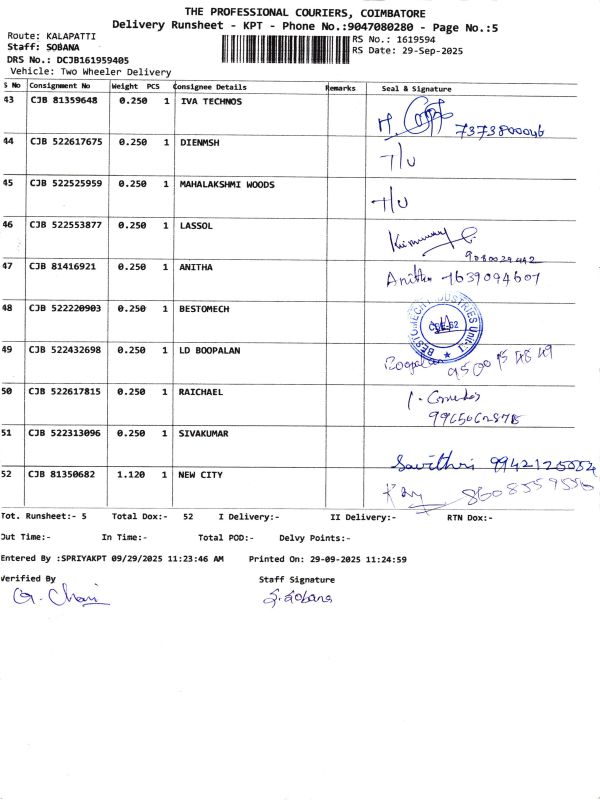 THE PROFESSIONAL COURIERS, COIMBATORE
Delivery Runsheet - KPT - Phone No.:9047080280 - Page No.:5
Route: KALAPATTI
RS No.: 1619594
Staff: SOBANA
RS Date: 29-Sep-2025
DRS No.: DCJB161959405
Vehicle: Two Wheeler Delivery
S No Consignment No Weight PCS Consignee Details Remarks Seal & Signature
43 CJB 81359648 0.250 1 IVA TECHNOS
7373800046
44 CJB 522617675 0.250 1 DIENMSH
T/U
45 CJB 522525959 0.250 1 MAHALAKSHMI WOODS
T/U
46 CJB 522553877 0.250 1 LASSOL
9080029442
47 CJB 81416921 0.250 1 ANITHA
Anitha 7639094607
48 CJB 522220903 0.250 1 BESTOMECH
BESTOMECH INDUSTRIES Unit-1
CBE-62
49 CJB 522432698 0.250 1 LD BOOPALAN
Boopalan
50 CJB 522617815 0.250 1 RAICHAEL
51 CJB 522313096 0.250 1 SIVAKUMAR
Savithri
52 CJB 81350682 1.120 1 NEW CITY
8608559556
Tot. Runsheet:- 5 Total Dox:- 52 I Delivery:- II Delivery:- RTN Dox:-
Out Time:- In Time:- Total POD:- Delvy Points:-
Entered By :SPRIYAKPT 09/29/2025 11:23:46 AM Printed On: 29-09-2025 11:24:59
Verified By Staff Signature
G. Chari S. Sobana